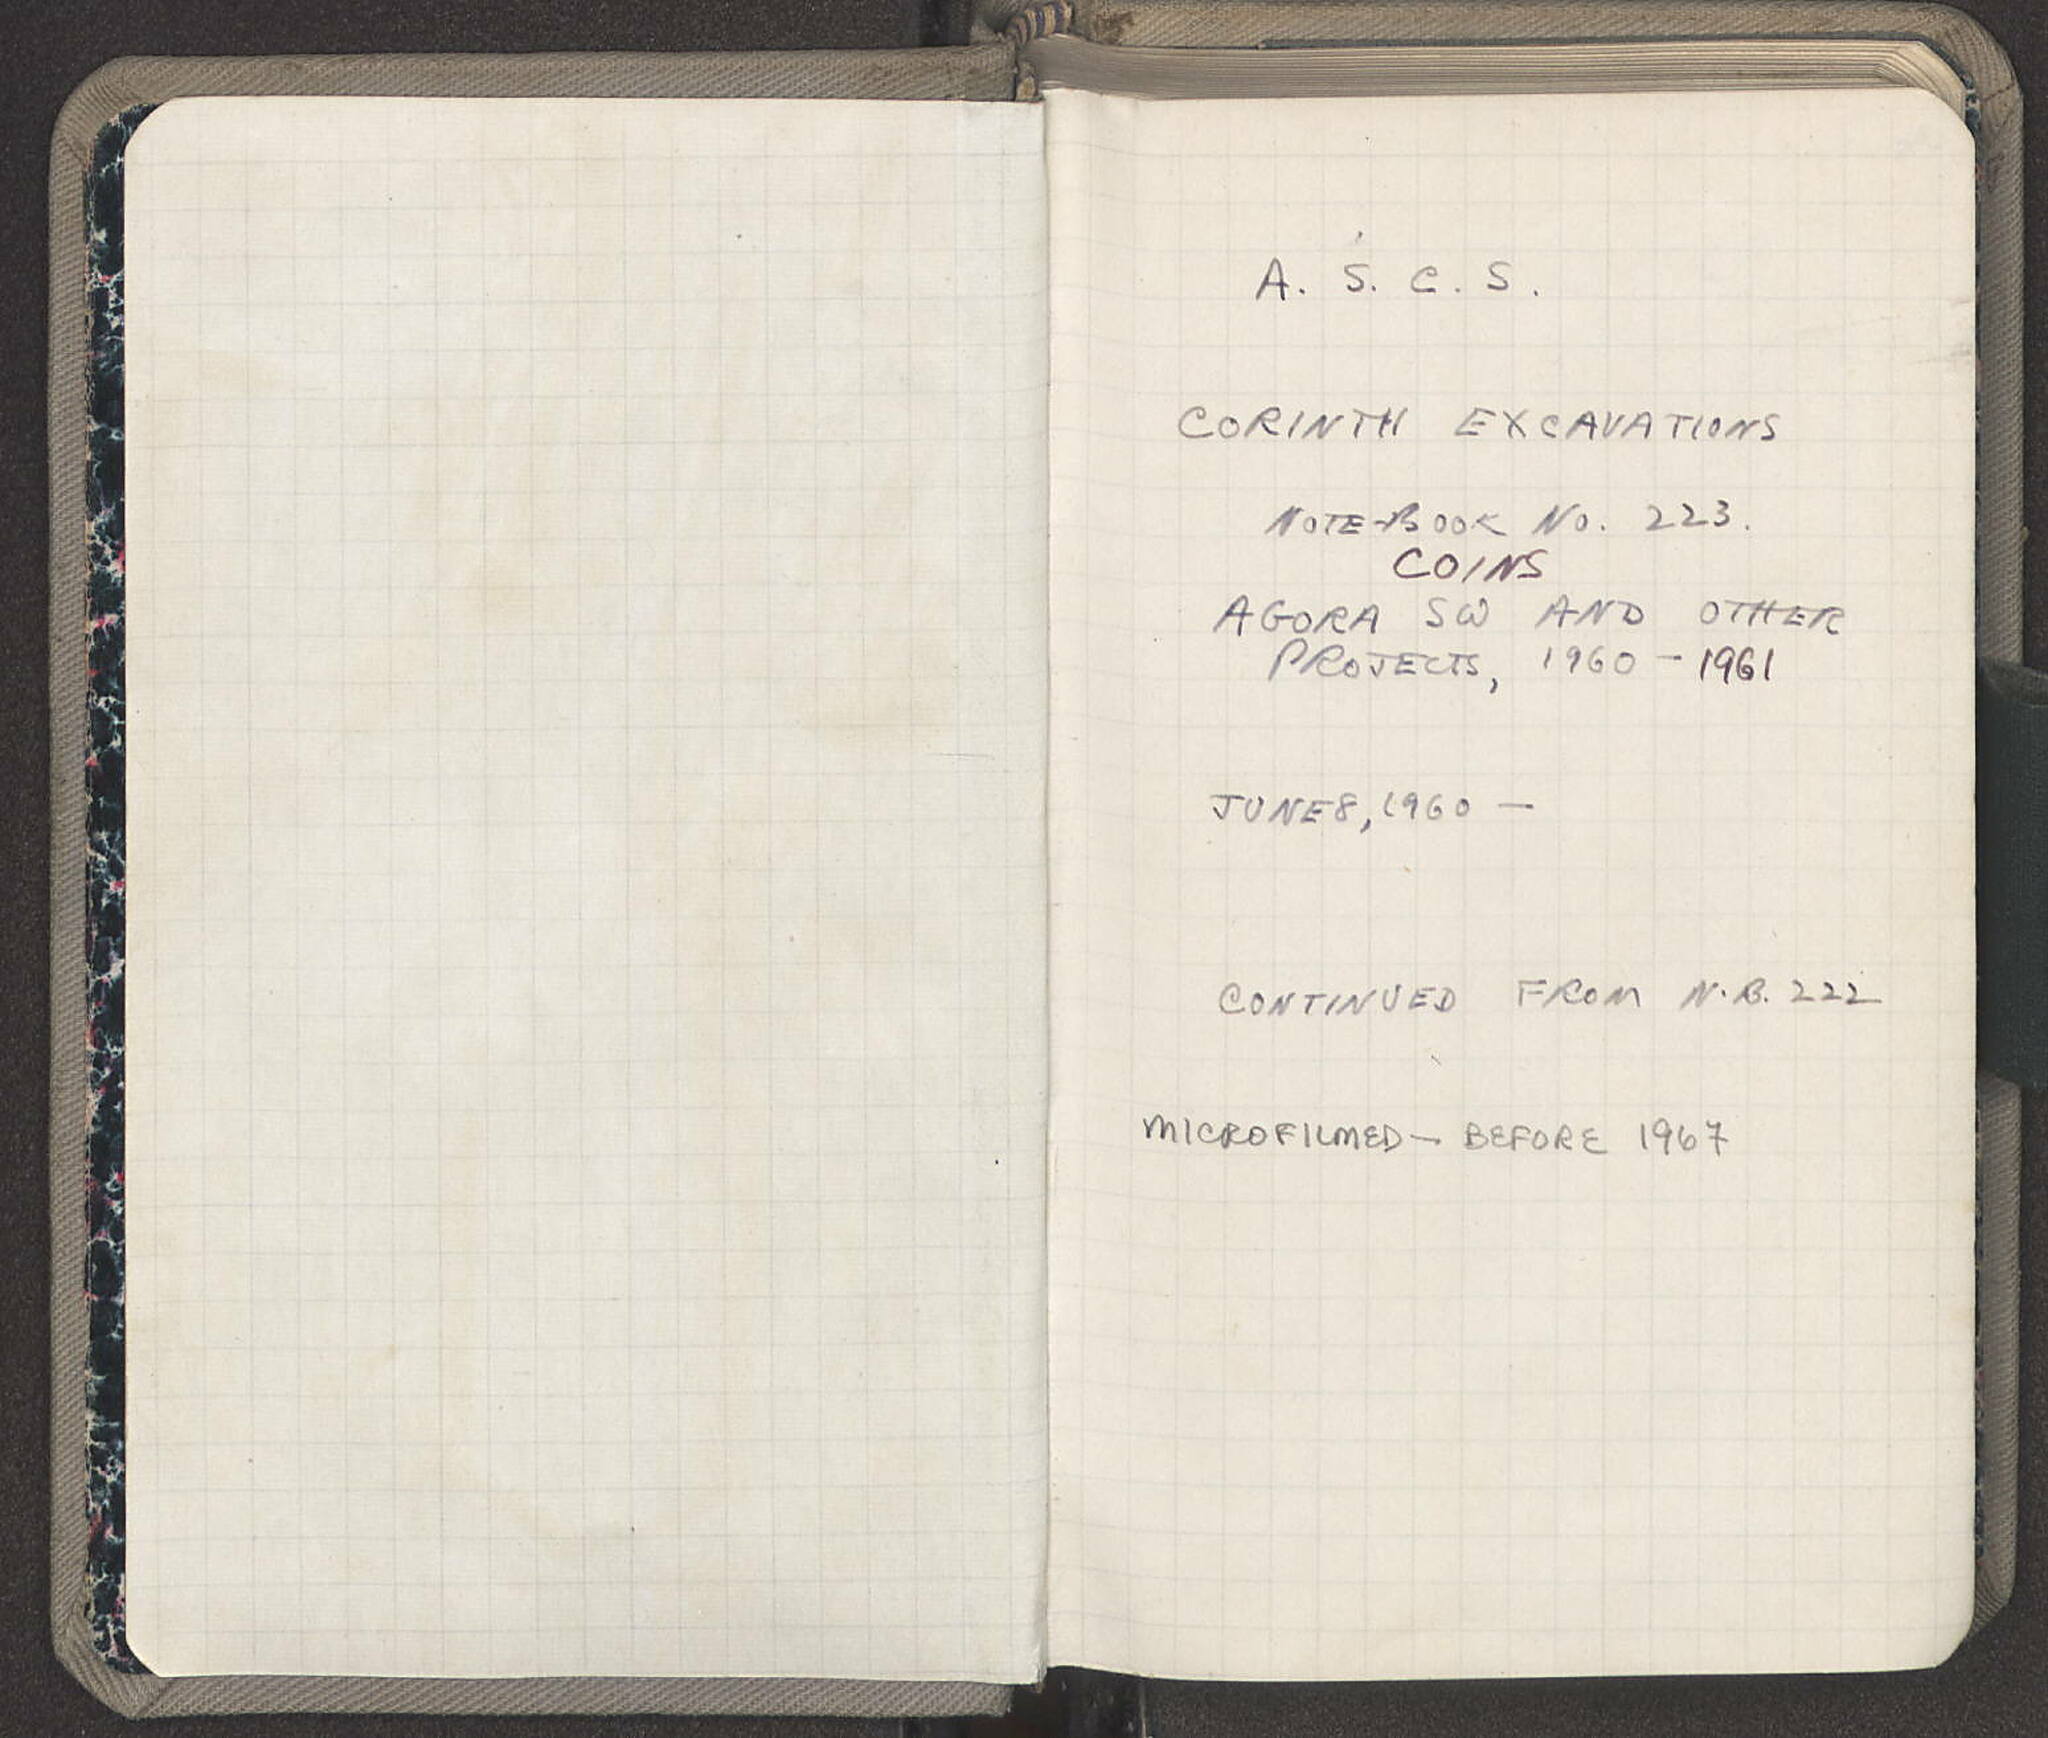 A. S. C. S.
CORINTH EXCAVATIONS
NOTE-BOOK NO. 223.
COINS
AGORA SW AND OTHER
PROJECTS, 1960 - 1961
JUNE 8, 1960 —
CONTINUED FROM N.B. 222
MICROFILMED - BEFORE 1967